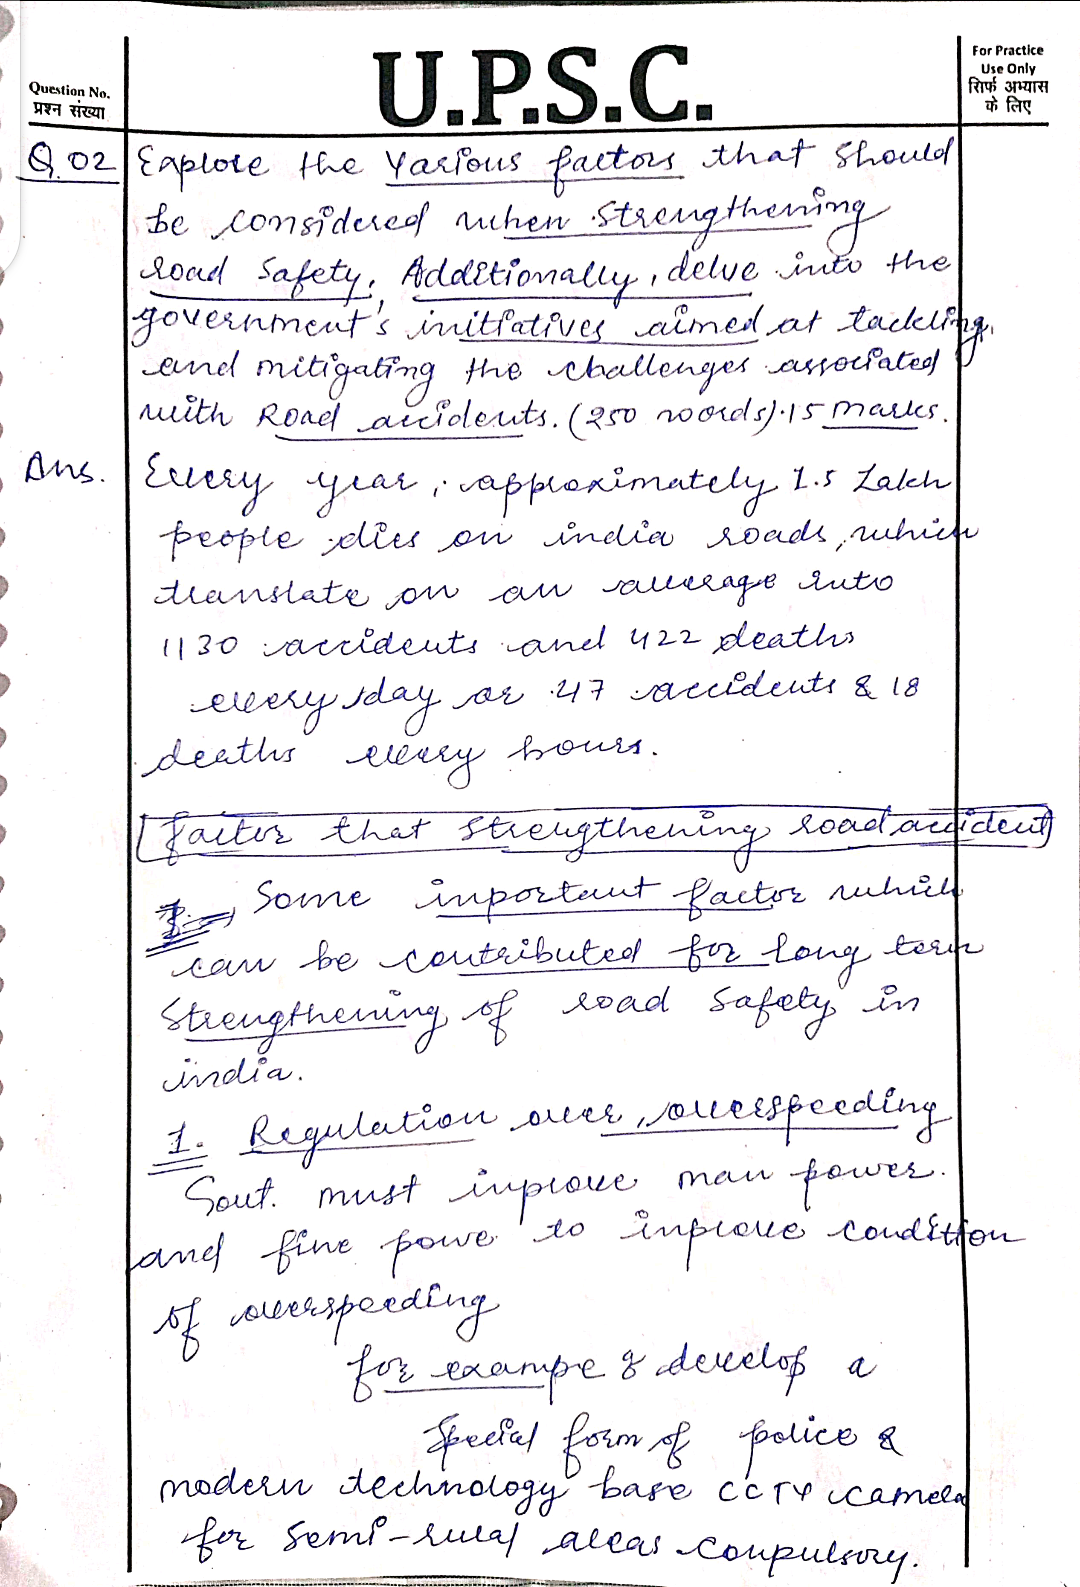 U.P.S.C.
Question No.
प्रश्न संख्या
For Practice
Use Only
सिर्फ अभ्यास
के लिए
Q.02 Explore the Various factors that should
be considered when strengthening
road safety. Additionally, delve into the
government's initiatives aimed at tackling
and mitigating the challenges associated
with Road accidents. (250 words).15 marks.
Ans. Every year, approximately 1.5 Lakh
people dies on india roads, which
translate on an average into
1130 accidents and 422 deaths
every day or 47 accidents & 18
deaths every hours.
factor that strengthening road accident
Some important factor which
can be contributed for long term
Strengthening of road Safety in
india.
1. Regulation over, overspeeding
Govt. must inprove man power.
and fine powe to inprove condition
of overspeeding
for exampe & develop a
Special form of police &
modern technology base CCTV camera
for Semi-rural areas conpulsory.